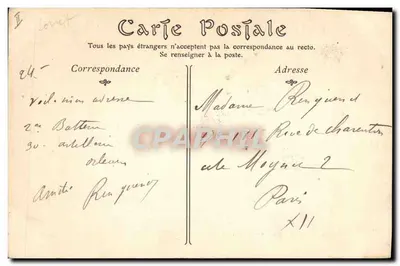 II
Carte Postale
Tous les pays étrangers n'acceptent pas la correspondance au recto.
Se renseigner à la poste.
Correspondance
Adresse
24
Voil mon adresse
2me Batterie
30 artillerie
orleans
Amitié
Madame
Rue de Charenton
2
Paris
XII